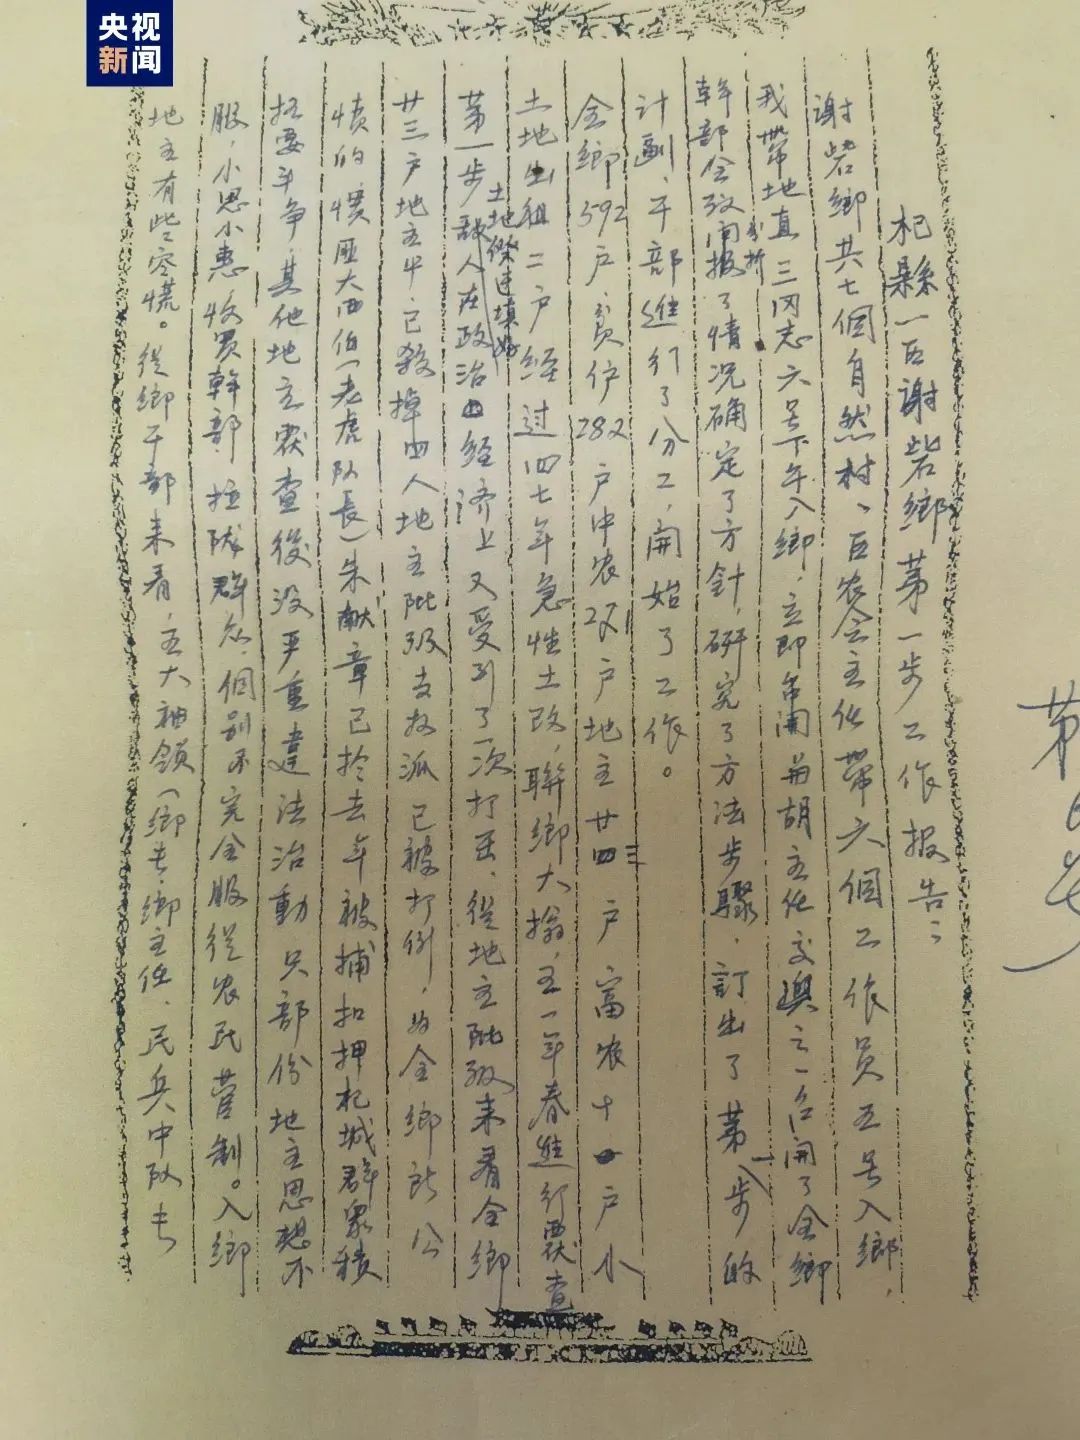 央视
新闻
杞縣一区谢砦鄉第一步工作报告:
谢砦鄉共七個自然村、区农会主任带六個工作员五号入鄉,
我带地直三同志六号下午入鄉,立即召開与胡主任交换之一召開了全鄉
幹部会议向报了情况确定了方針,研究了方法步驟,訂出了第一步的
分析
計劃,干部進行了分工,開始了工作。
全鄉592户,贫农282户中农271户地主廿三户富农十户小
土地出租二户经过四七年急性土改,联鄉大搞,五一年春進行覆查
土地
第一步敌人在政治经济上又受到了一次打击,從地主阶级来看全鄉
廿三户地主中已殺掉四人地主阶级支权派已被打倒,为全鄉所公
愤的惯匪大西伯(老虎队長)朱献章已於去年被捕扣押杞城群众積
极要斗争,其他地主覆查後没严重違法活動只部份地主思想不
服,小恩小惠,收買幹部拉拢群众,個别不完全服從农民管制。入鄉
地主有些恐慌。從鄉干部来看,五大袖领(鄉長、鄉主任、民兵中队長